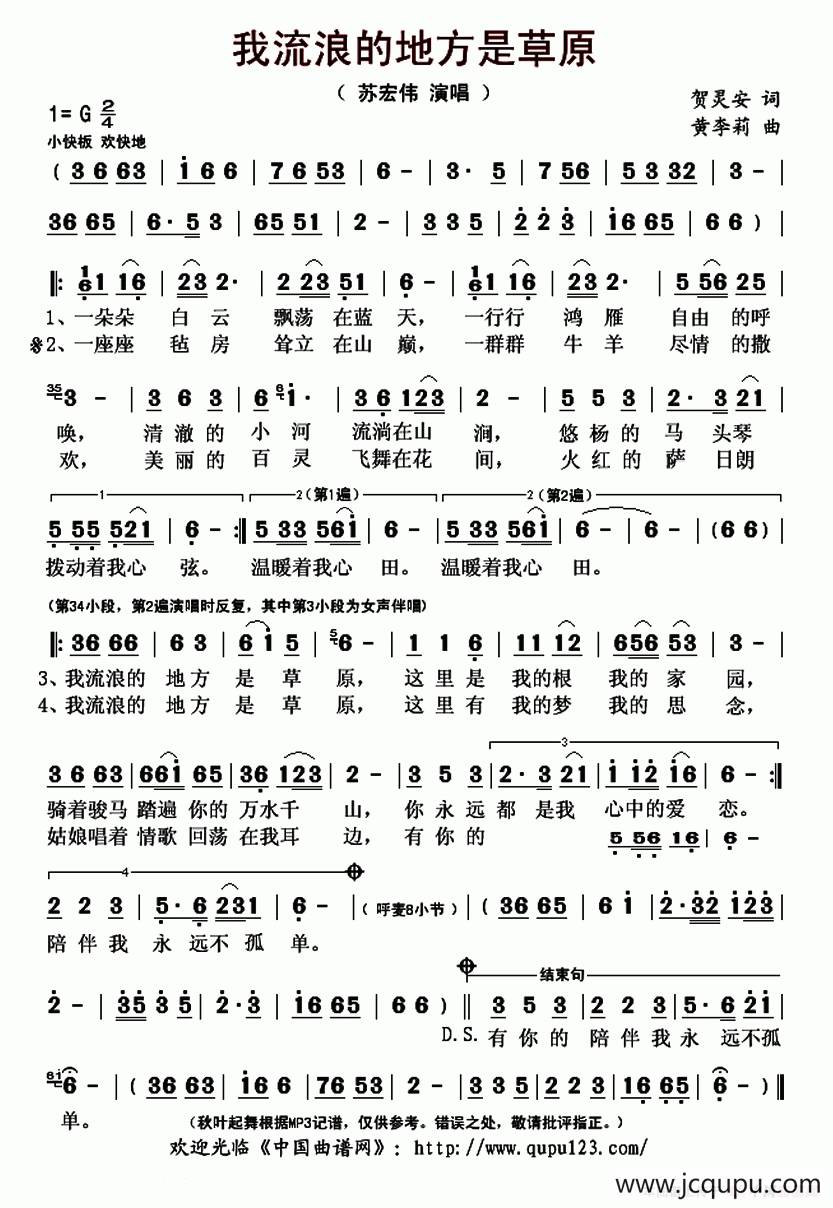 我流浪的地方是草原
（ 苏宏伟 演唱 ）
贺灵安 词
1= G 2/4
黄李莉 曲
小快板 欢快地
( 3 6 63 | i 6 6 | 7 6 53 | 6 - | 3· 5 | 7 56 | 5 3 32 | 3 - |
36 65 | 6· 5 3 | 65 51 | 2 - | 3 3 5 | 2 2 3 | i6 65 | 6 6 ) |
‖: 1/6 1 16 | 23 2· | 2 23 51 | 6 - | 1/6 1 16 | 23 2· | 5 56 25 |
1、一朵朵 白云 飘荡在蓝 天， 一行行 鸿雁 自由的呼
※2、一座座 毡房 耸立在山 巅， 一群群 牛羊 尽情的撒
35 3 - | 3 6 3 | 6 6 i· | 3 6 123 | 2 - | 5 5 3 | 2· 3 21 |
唤， 清澈的 小河 流淌在山 涧， 悠杨的 马头琴
欢， 美丽的 百灵 飞舞在花 间， 火红的 萨日朗
1 2（第1遍） 2（第2遍）
5 55 5521 | 6 - :‖ 5 33 556i | 6 - | 5 33 556i | 6 - | 6 - | ( 6 6 ) |
拨动着我心 弦。 温暖着我心 田。温暖着我心 田。
(第34小段，第2遍演唱时反复，其中第3小段为女声伴唱)
‖: 36 66 | 6 3 | 6i i 5 | 5 6 - | 1 1 6 | 11 12 | 656 53 | 3 - |
3、我流浪的 地方 是草 原， 这里是 我的根 我的家 园，
4、我流浪的 地方 是草 原， 这里有 我的梦 我的思 念，
3
3 6 63 | 66i 65 | 36 123 | 2 - | 3 5 3 | 2· 3 21 | i i2 i6 | 6 - :‖
骑着骏马 踏遍你的 万水千 山， 你永远 都是我 心中的爱 恋。
姑娘唱着 情歌回荡 在我耳 边， 有你的 5 56 16 | 6 -
4
2 2 3 | 5· 6 231 | 6 - |（ 呼麦8小节 ）| ( 36 65 | 6 i | 2· 32 | 123 |
陪伴我 永远不孤 单。
结束句
2 - | 35 3 5 | 2· 3 | i6 65 | 6 6 ) ‖ 3 5 3 | 2 2 3 | 5· 6 2i |
D.S. 有你的 陪伴我 永远不孤
6i 6 - | ( 36 63 | i 6 6 | 76 53 | 6 6 | 3 5 3 | 23 5 | 16 65 | 6 - ) ‖
单。 (秋叶起舞根据MP3记谱，仅供参考。错误之处，敬请批评指正。)
欢迎光临《中国曲谱网》：http://www.qupu123.com/
www.jcqupu.com